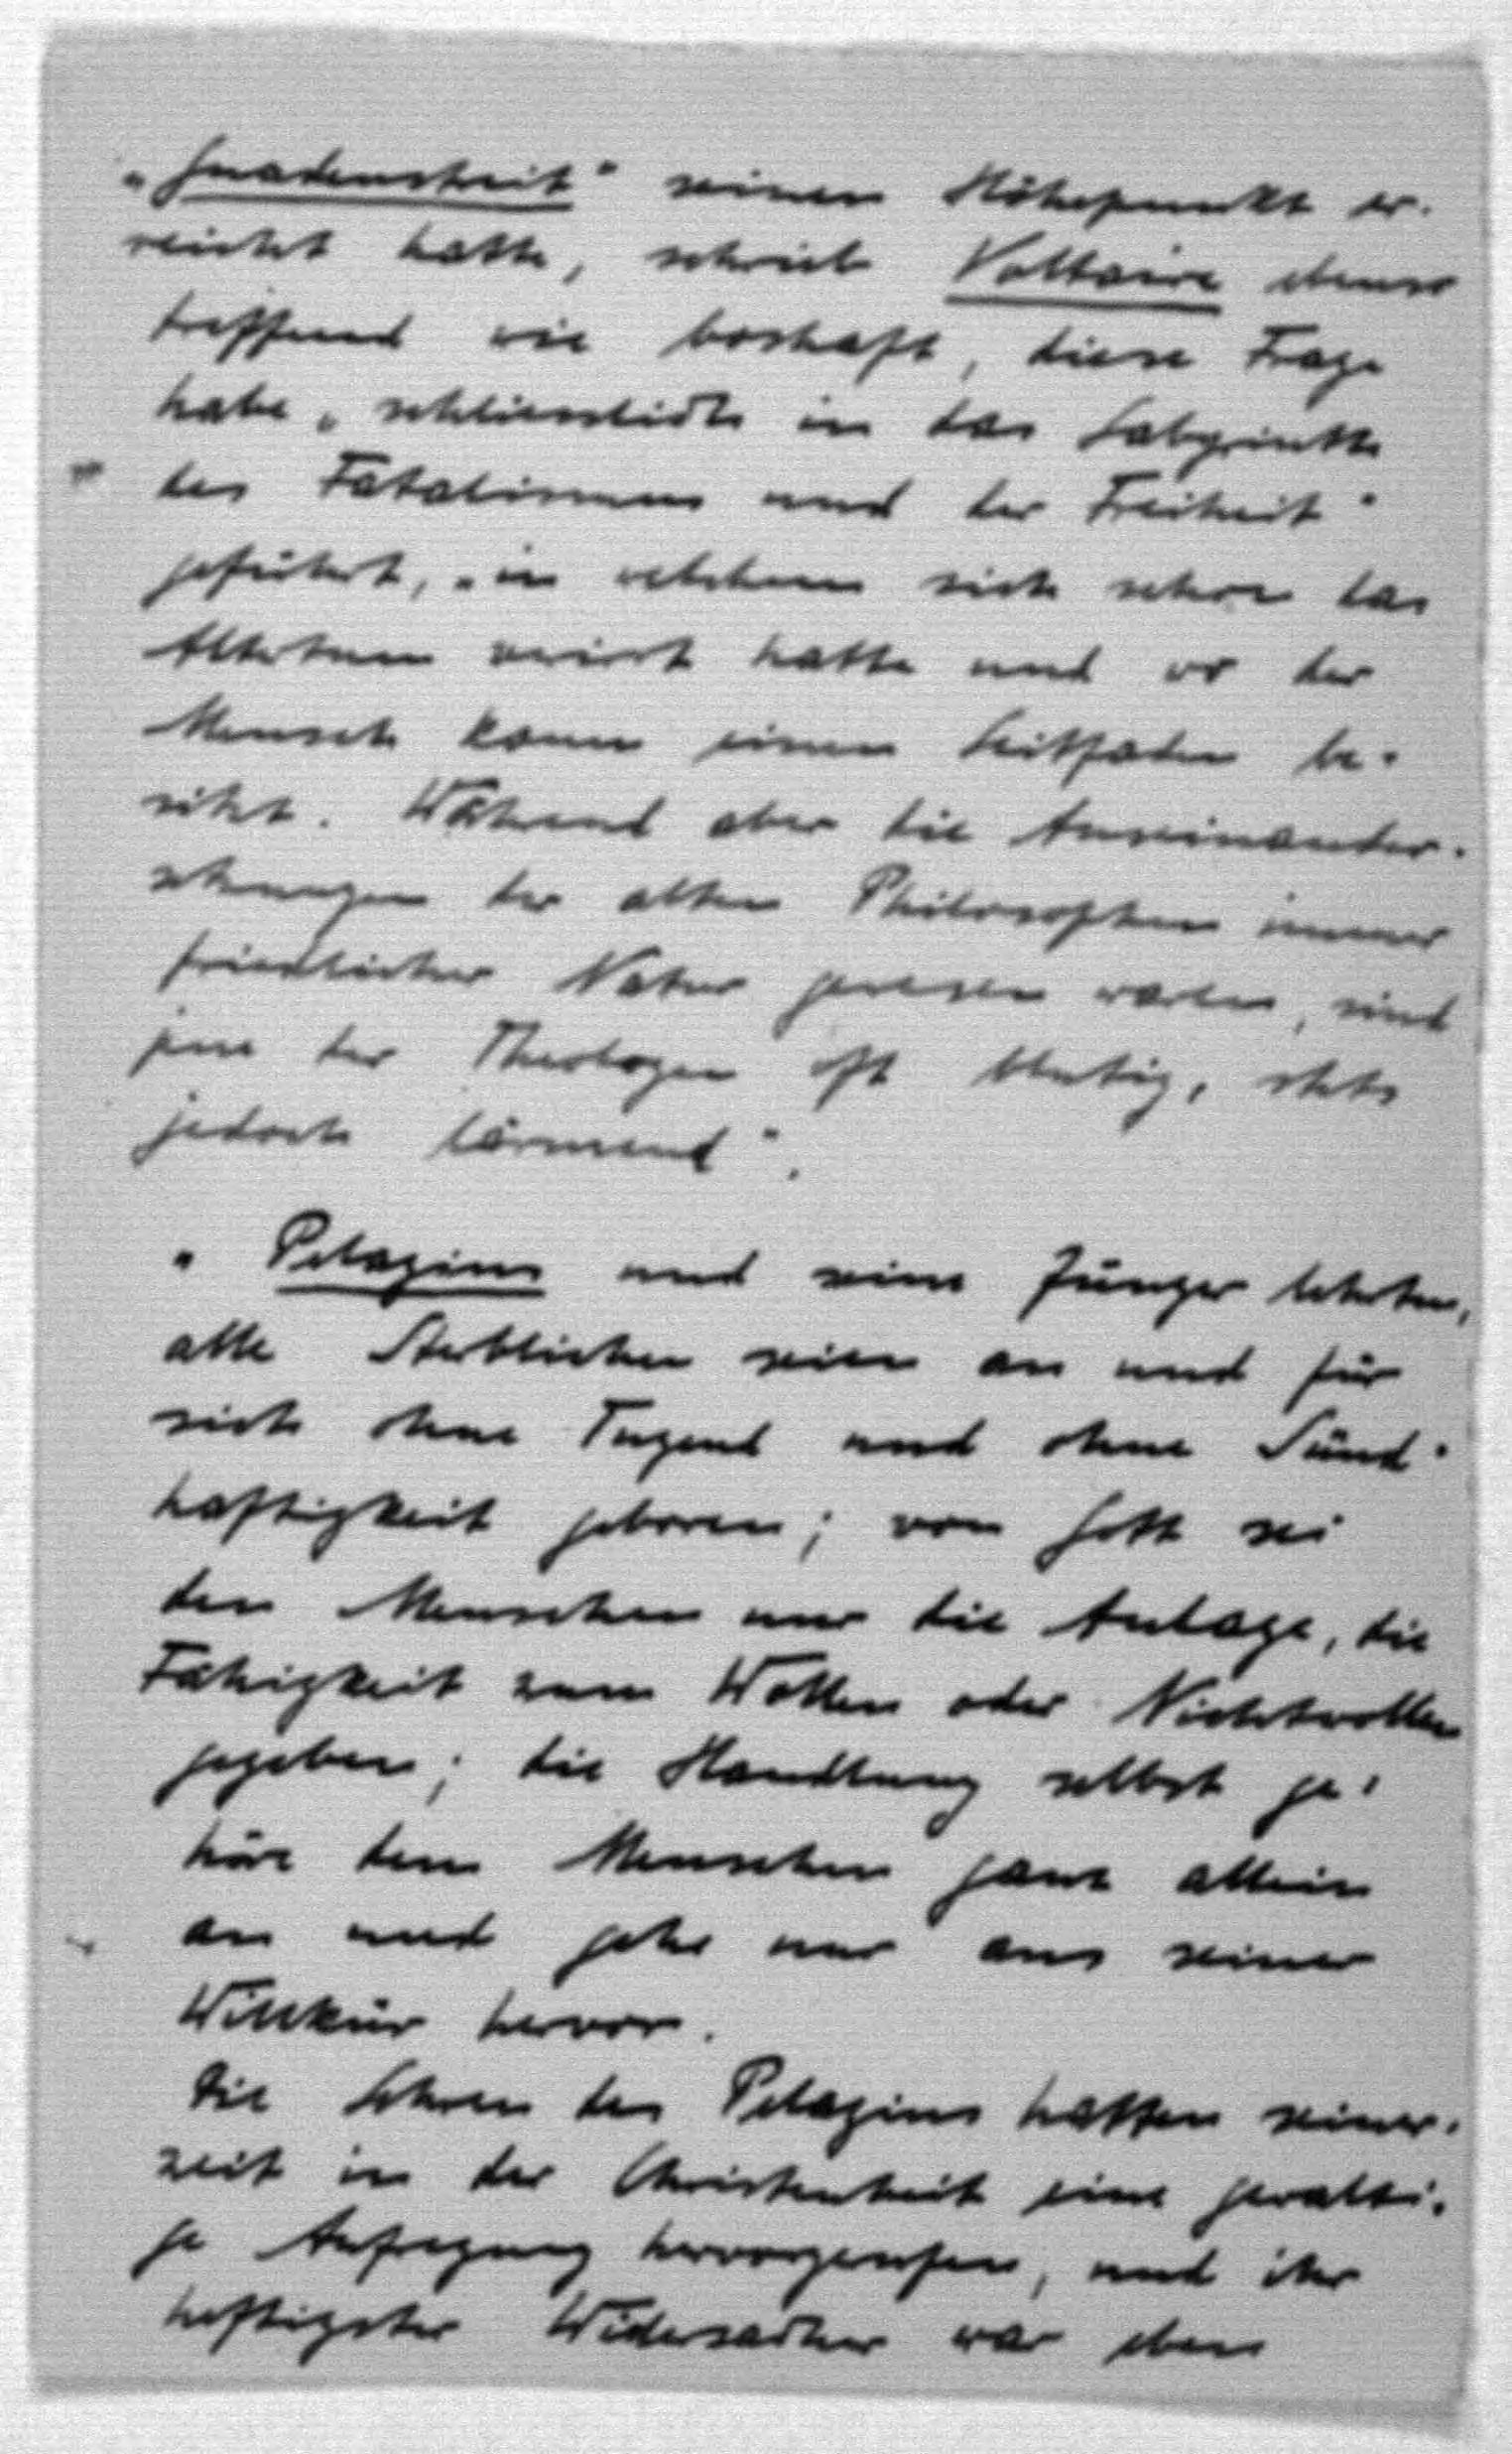 „Gnadenstreit“ seinen Höhepunkt er-
reicht hatte, schrieb Voltaire ebenso
treffend wie boshaft, diese Frage
habe „schliesslich in das Labyrinth
des Fatalismus und der Freiheit“
geführt, „in welchem sich schon das
Altertum verirrt hatte und wo der
Mensch kaum einen Leitfaden be-
sitzt. Während aber die Auseinander-
setzungen der alten Philosophen immer
friedlicher Natur gewesen waren, sind
jene der Theologen oft blutig, stets
jedoch lärmend“.
„Pelagius und seine Jünger lehrten,
alle Sterblichen seien an und für
sich ohne Tugend und ohne Sünd-
haftigkeit geboren; von Gott sei
den Menschen nur die Anlage, die
Fähigkeit zum Wollen oder Nichtwollen
gegeben; die Handlung selbst ge-
höre dem Menschen ganz allein
an und gehe nur aus seiner
Willkür hervor.
Die Lehren des Pelagius hatten seiner-
zeit in der Christenheit eine gewalti-
ge Aufregung hervorgerufen, und ihr
heftigster Widersacher war eben